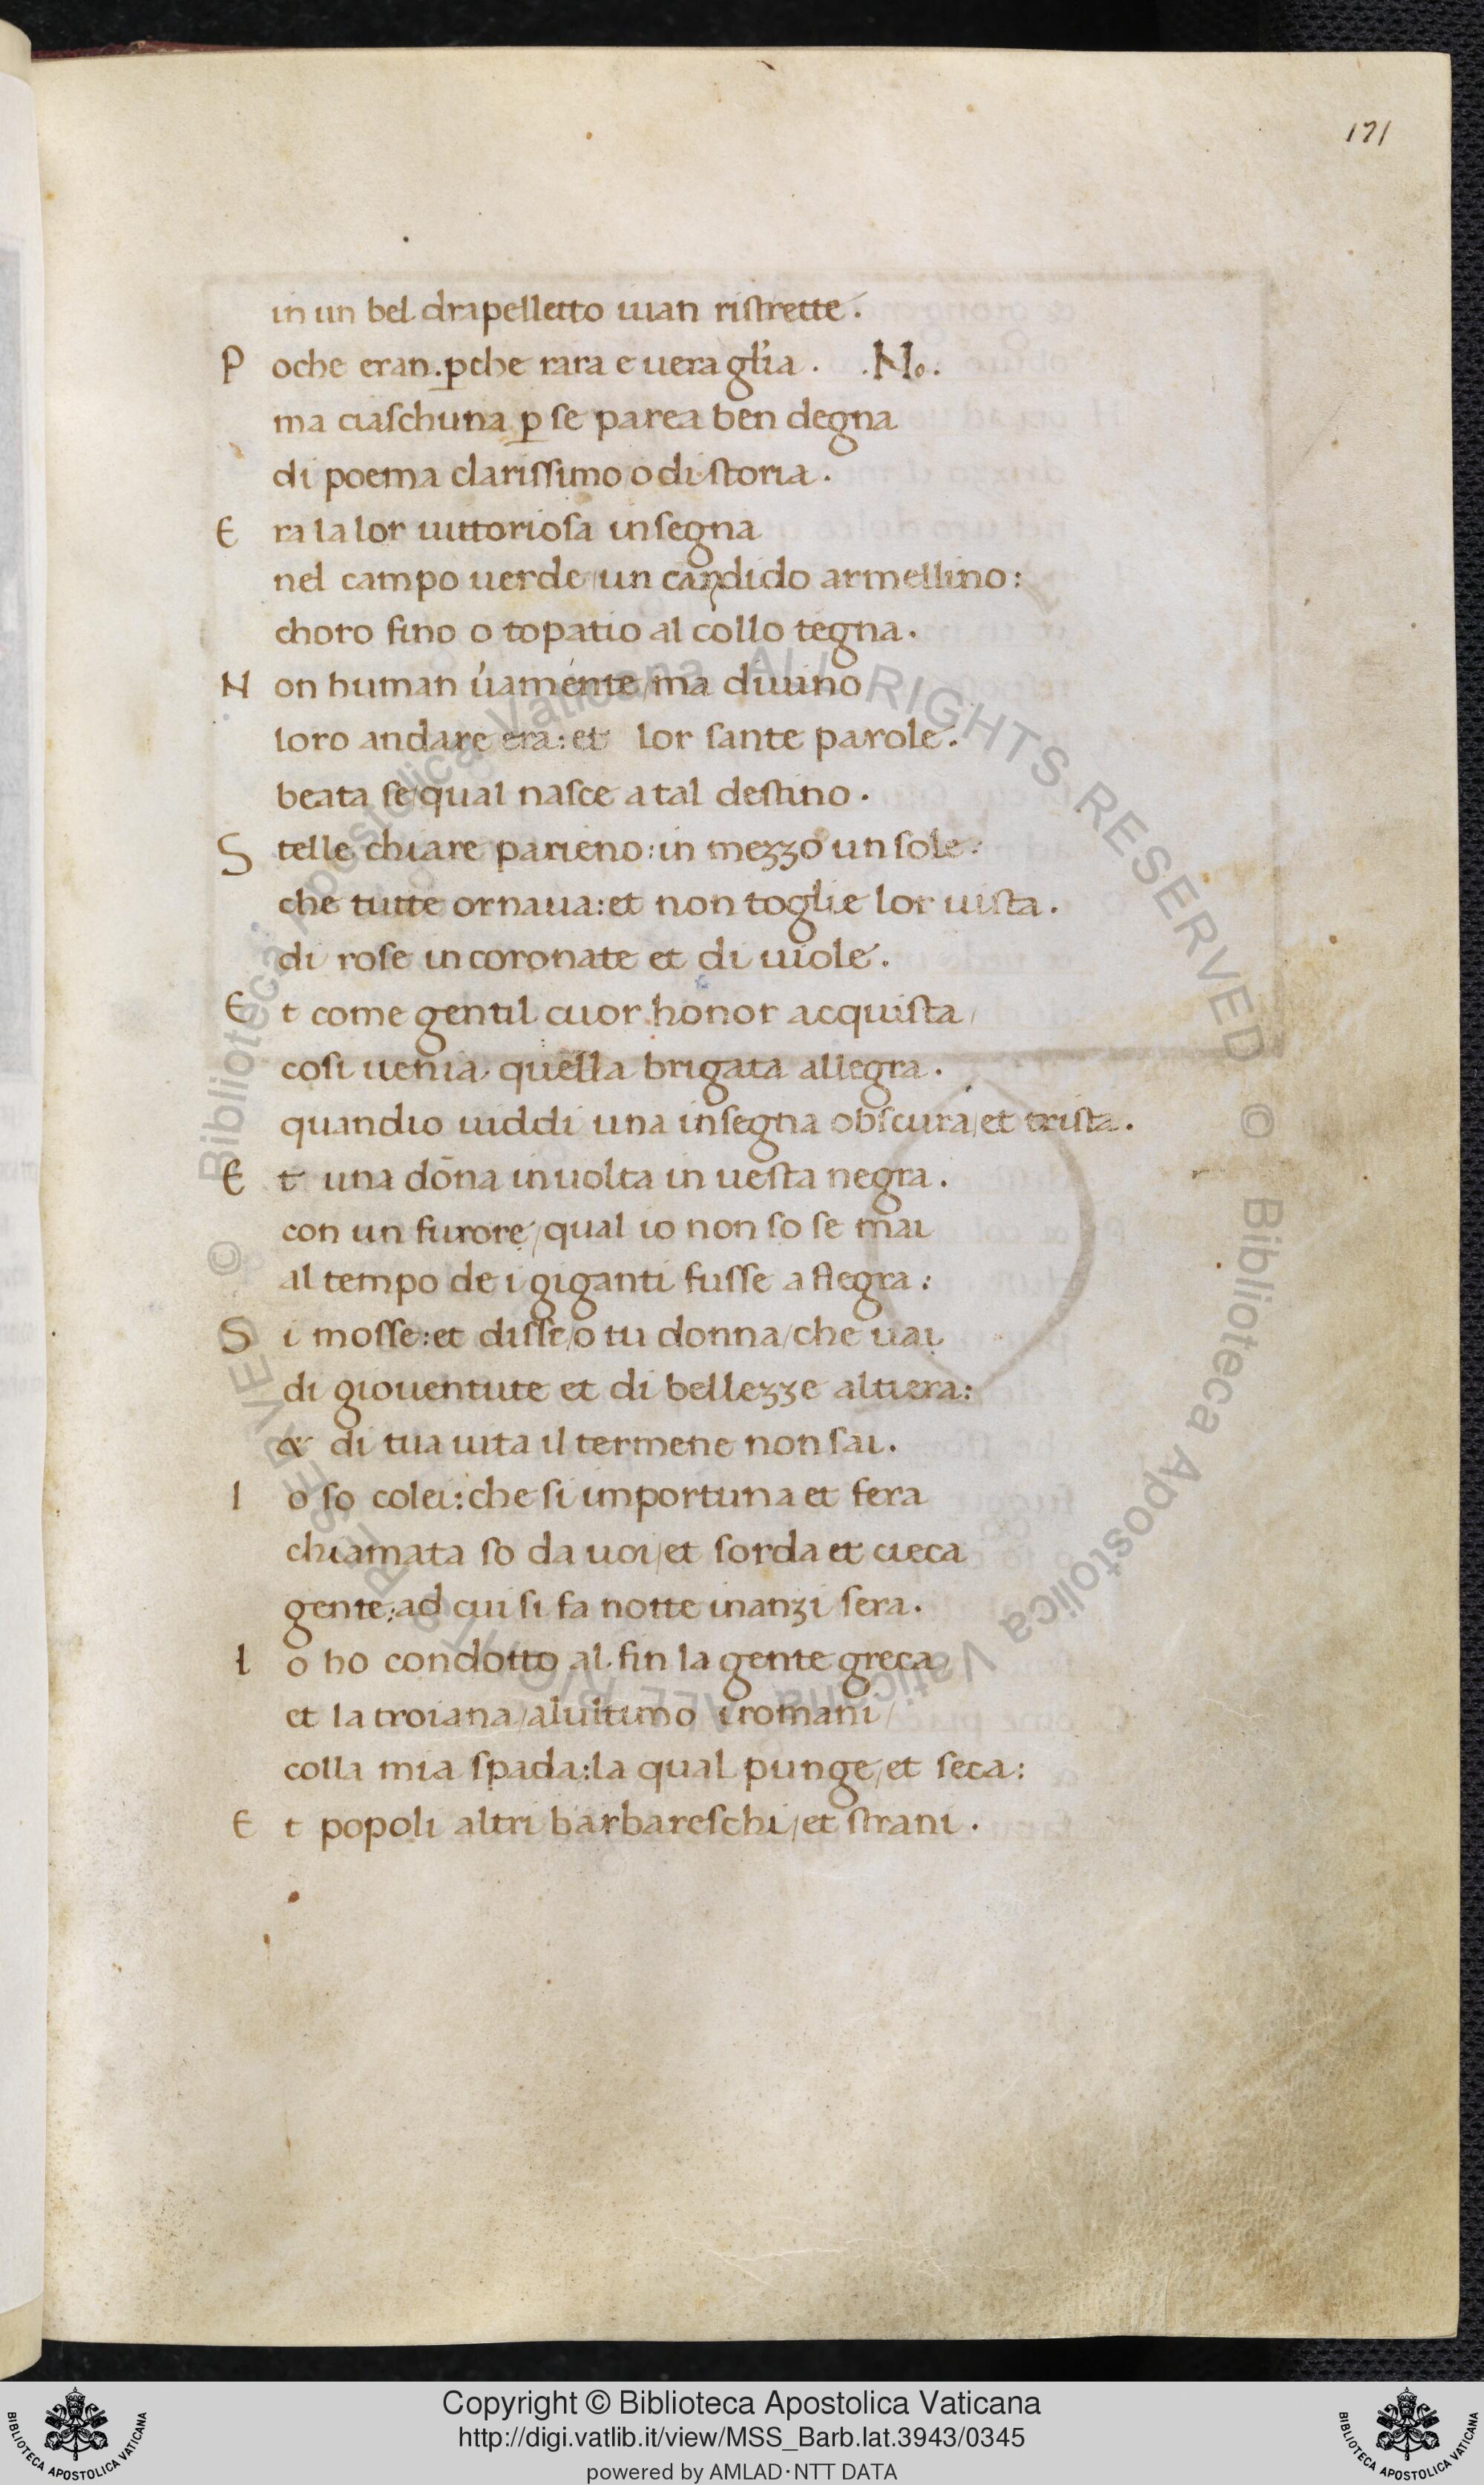 171
in un bel drapelletto iuan ristrette.
P oche eran. ꝑche rara e uera gl̃ia. .No.
ma ciaschuna ꝑ se parea ben degna
di poema clarissimo o di storia.
E ra la lor uittoriosa insegna
nel campo uerde/un candido armellino:
choro fino o topatio al collo tegna.
N on human u̓amente/ma diuino
loro andare era: et lor sante parole.
beata se/qual nasce a tal destino.
S telle chiare parieno: in mezzo un sole:
che tutte ornaua: et non toglie lor uista.
di rose incoronate et di uiole.
E t come gentil cuor honor acquista/
cosi uenia quella brigata allegra.
quandio uiddi una insegna obscura/et trista.
E t una dōna inuolta in uesta negra.
con un furore/qual io non so se mai
al tempo de i giganti fusse a flegra:
S i mosse: et disse/o tu donna/che uai
di giouentute et di bellezze altiera:
& di tua uita il termene non sai.
I o so colei: che si importuna et fera
chiamata so da uoi/et sorda et cieca
gente: ad cui si fa notte inanzi sera.
I o ho condotto al fin la gente greca
et la troiana/alultimo i romani/
colla mia spada: la qual punge/et seca:
E t popoli altri barbareschi/et strani.
© Biblioteca Apostolica Vaticana ALL RIGHTS RESERVED © Biblioteca Apostolica Vaticana ALL RIGHTS RESERVED
Copyright © Biblioteca Apostolica Vaticana
http://digi.vatlib.it/view/MSS_Barb.lat.3943/0345
powered by AMLAD·NTT DATA
BIBLIOTECA APOSTOLICA VATICANA
BIBLIOTECA APOSTOLICA VATICANA